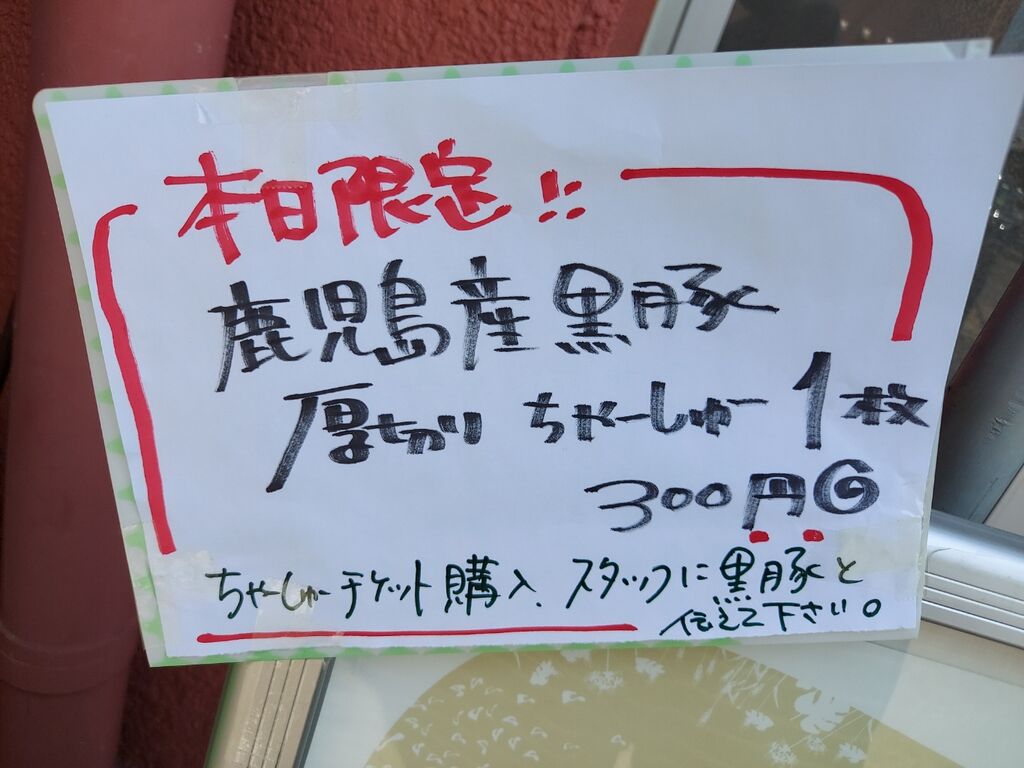 本日限定!!
鹿児島産黒豚
厚切り ちゃーしゅー 1枚
300円Ⓖ
ちゃーしゅーチケット購入、スタッフに黒豚と
伝えて下さい。